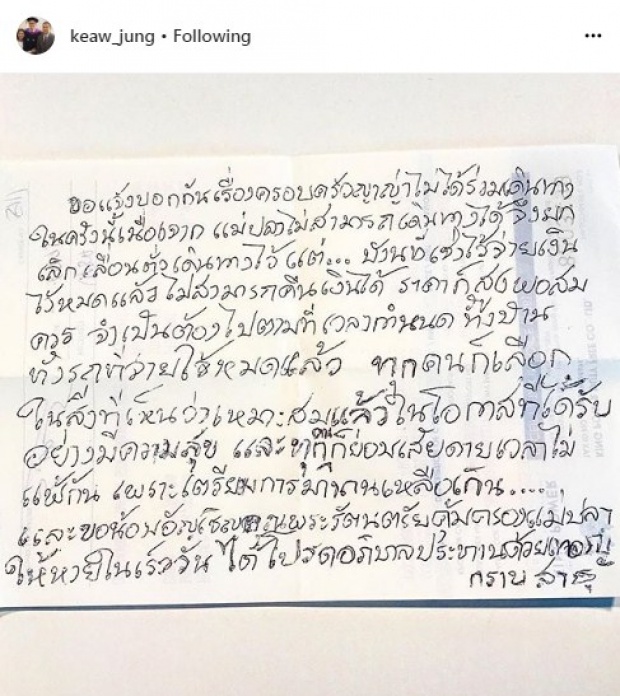 keaw_jung • Following
ขอแจ้งบอกกันเรื่องครอบครัวญาญ่าไม่ได้ร่วมเดินทาง
ในครั้งนี้เนื่องจาก แม่ปลาไม่สามารถเดินทางได้ จึงยก
เลิกเลื่อนตั๋วเดินทางไว้ แต่... บ้านที่เช่าไว้จ่ายเงิน
ไว้หมดแล้วไม่สามารถคืนเงินได้ ราคาก็สูงพอสม
ควร จำเป็นต้องไปตามที่เวลากำหนด ทั้งบ้าน
ทั้งรถที่จ่ายไว้หมดแล้ว ทุกคนก็เลือก
ในสิ่งที่เห็นว่าเหมาะสมแล้วในโอกาสที่ได้รับ
อย่างมีความสุข และก็ย่อมเสียดายเวลาไม่
แพ้กัน เพราะเตรียมการมานานเหลือเกิน....
และขอน้อมอัญเชิญคุณพระรัตนตรัยคุ้มครองแม่ปลา
ให้หายในเร็ววัน ได้โปรดอภิบาลประทานด้วย
กราบ สาธุ